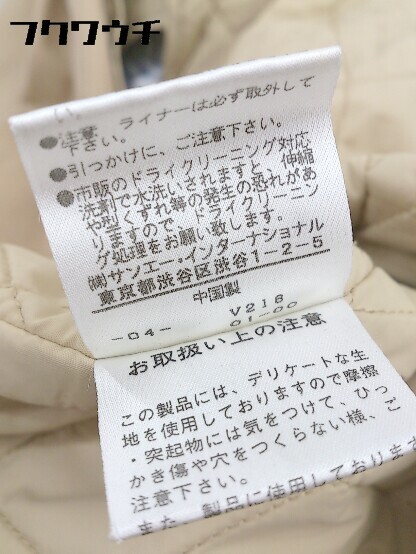 フクワウチ
い。
●注意　ライナーは必ず取外して
下さい。
●引つかけに、ご注意下さい。
●市販のドライクリーニング対応
洗剤で水洗いされますと、伸縮
や型くずれ等の発生の恐れがあ
りますので、ドライクリーニン
グ処理をお願い致します。
㈱サンエー・インターナショナル
東京都渋谷区渋谷1-2-5
中国製
V218
-04- 01-00
お取扱い上の注意
この製品には、デリケートな生
地を使用しておりますので摩擦
・突起物には気をつけて、ひっ
かき傷や穴をつくらない様、ご
注意下さい。
また、製品に使用しておりま